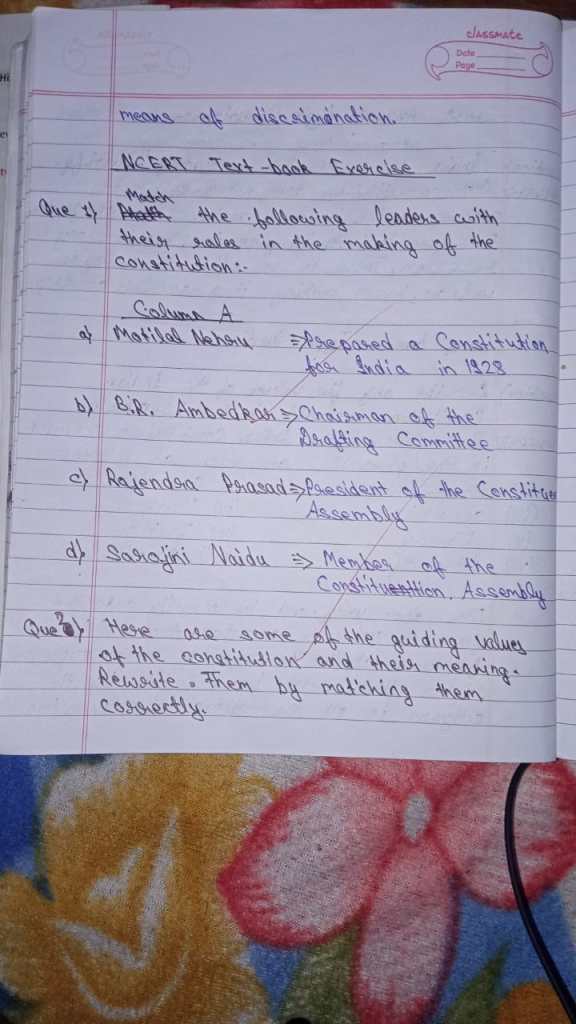 classmate
Date
Page
means of discrimination.
NCERT Text-book Exercise
Match
Que 1) the following leaders with
their roles in the making of the
constitution:-
Column A
a) Motilal Nehru ⇒ Prepared a Constitution
for India in 1928
b) B.R. Ambedkar ⇒ Chairman of the
Drafting Committee
c) Rajendra Prasad ⇒ President of the Constitue
Assembly
d) Sarojini Naidu ⇒ Member of the
Assembly
Que 2) Here are some of the guiding values
of the constitution and their meaning.
Rewrite. Them by matching them
correctly.